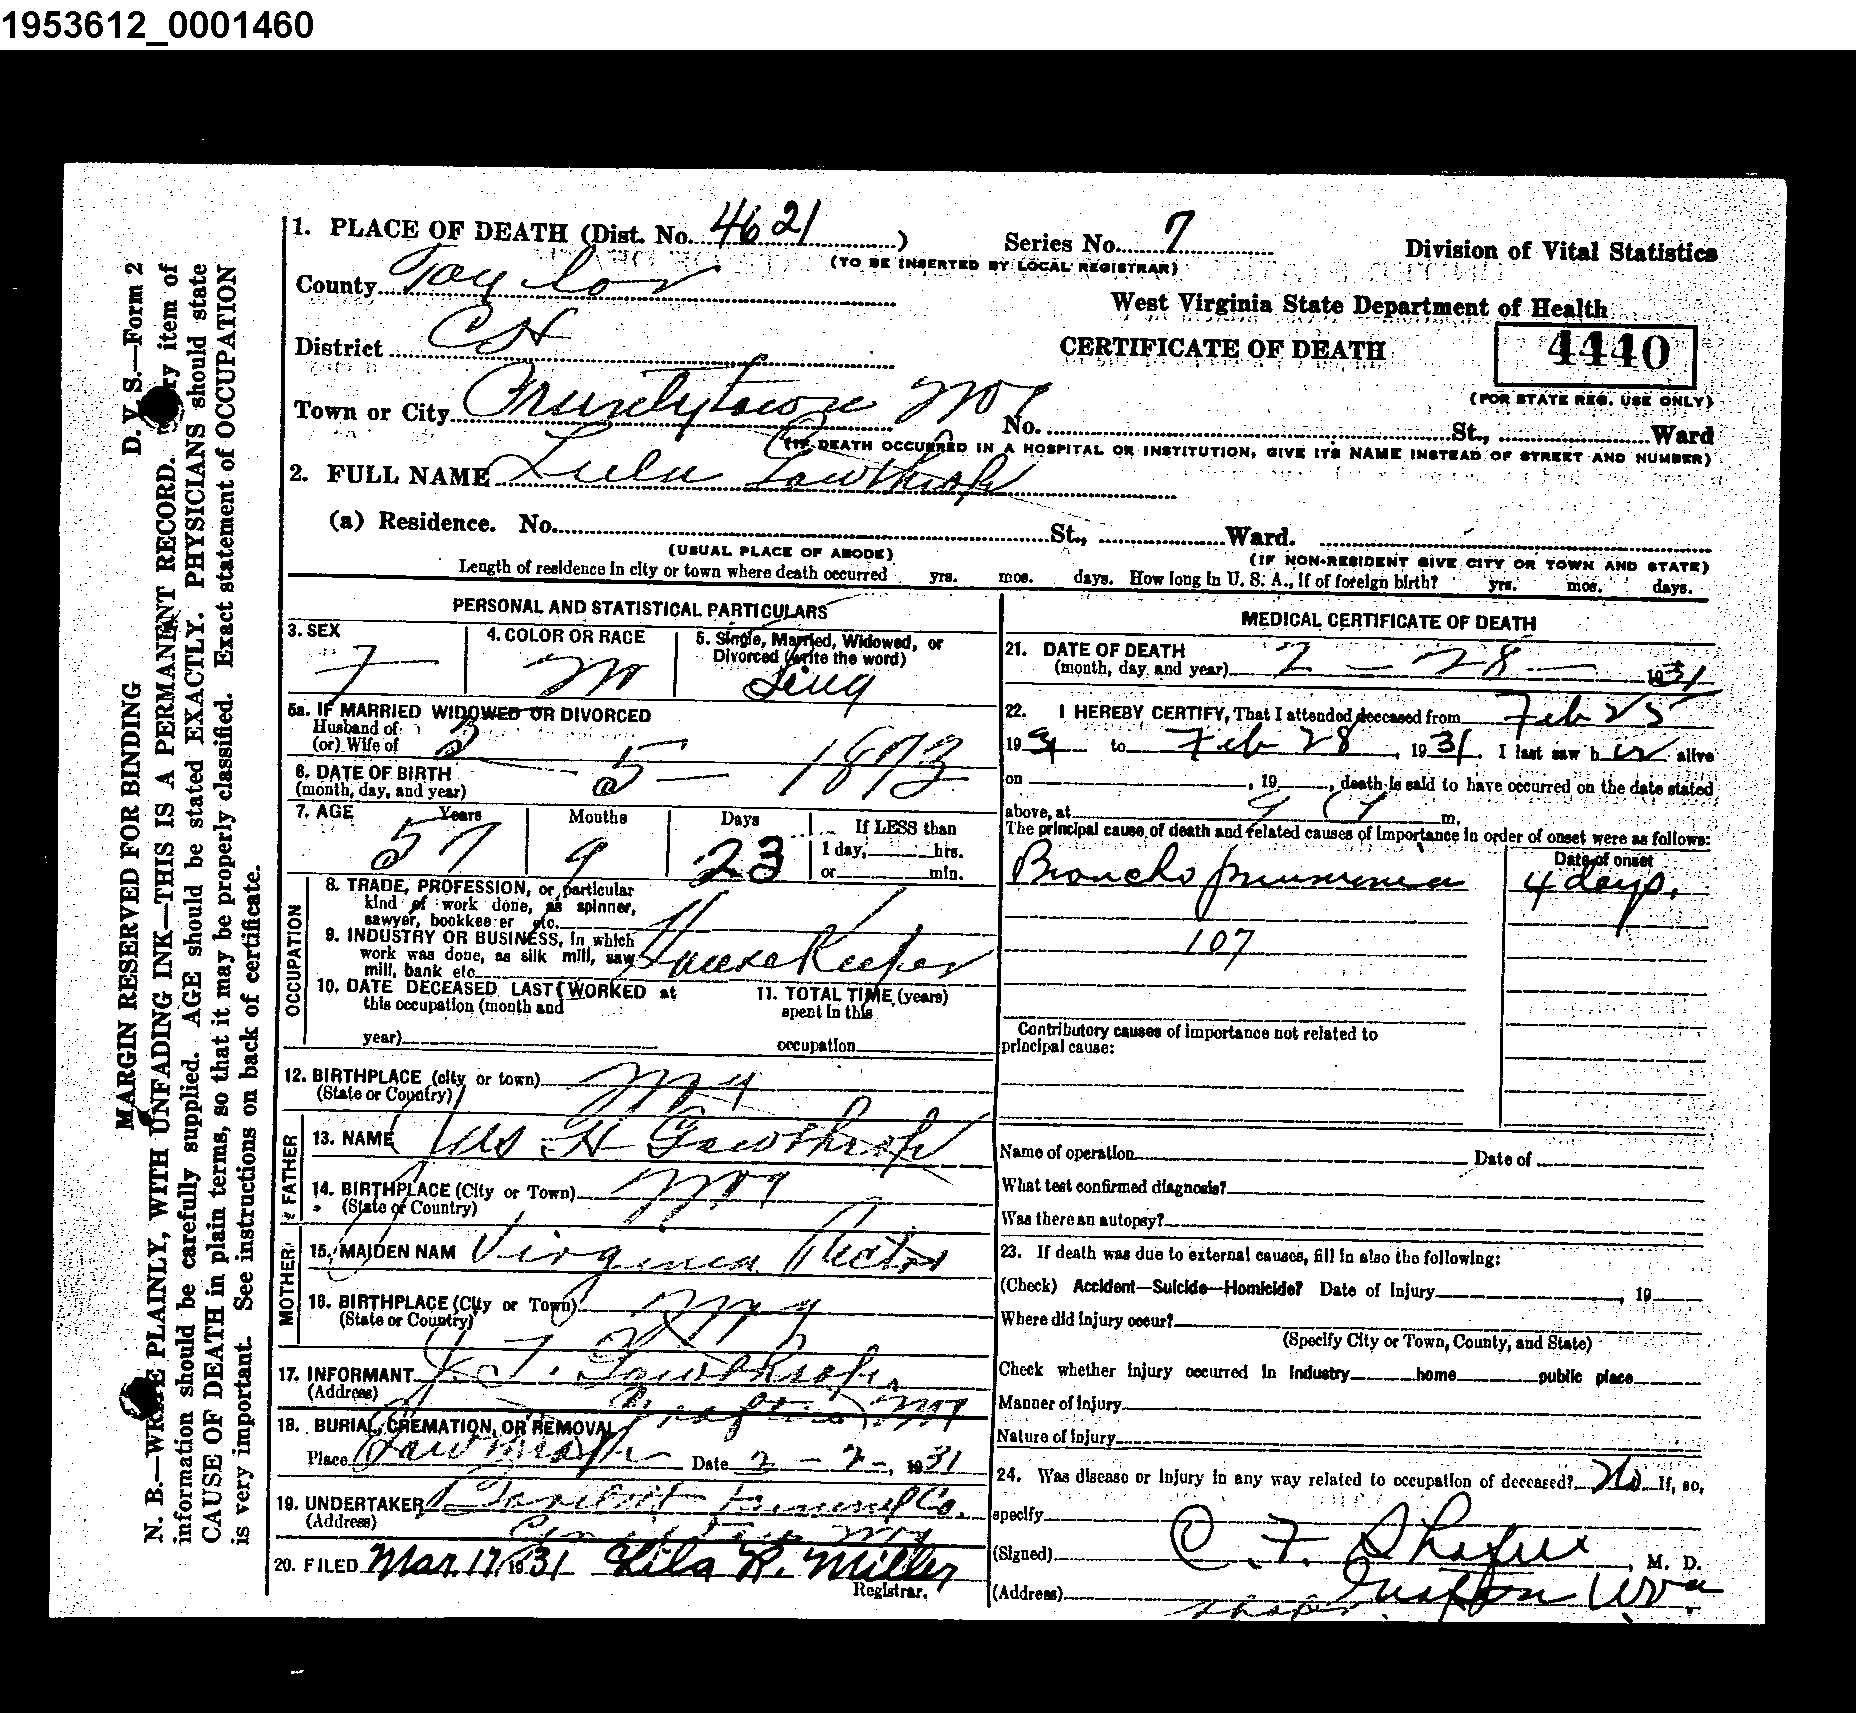 1953612_0001460
1. PLACE OF DEATH (Dist. No. 4621 )
Series No. 7
Division of Vital Statistics
(TO BE INSERTED BY LOCAL REGISTRAR)
County Taylor
West Virginia State Department of Health
District CH
CERTIFICATE OF DEATH
4440
(FOR STATE REG. USE ONLY)
Town or City Pruntytown No. St., Ward
(IF DEATH OCCURRED IN A HOSPITAL OR INSTITUTION, GIVE ITS NAME INSTEAD OF STREET AND NUMBER)
2. FULL NAME Lulu Gawthrop
(a) Residence. No. St., Ward.
(USUAL PLACE OF ABODE) (IF NON-RESIDENT GIVE CITY OR TOWN AND STATE)
Length of residence in city or town where death occurred yrs. mos. days. How long in U. S. A., if of foreign birth? yrs. mos. days.
D. V. S.—Form 2
MARGIN RESERVED FOR BINDING
N. B.—WRITE PLAINLY, WITH UNFADING INK—THIS IS A PERMANENT RECORD. Every item of
information should be carefully supplied. AGE should be stated EXACTLY. PHYSICIANS should state
CAUSE OF DEATH in plain terms, so that it may be properly classified. Exact statement of OCCUPATION
is very important. See instructions on back of certificate.
PERSONAL AND STATISTICAL PARTICULARS
3. SEX
F
4. COLOR OR RACE
W
5. Single, Married, Widowed, or
Divorced (write the word)
Sing
5a. IF MARRIED WIDOWED OR DIVORCED
Husband of
(or) Wife of
6. DATE OF BIRTH
(month, day, and year)
5 – 5 – 1873
7. AGE Years Months Days
57 9 23
If LESS than
1 day, hrs.
or min.
OCCUPATION
8. TRADE, PROFESSION, or particular
kind of work done, as spinner,
sawyer, bookkeeper etc.
9. INDUSTRY OR BUSINESS, in which
work was done, as silk mill, saw
mill, bank etc.
House Keeper
10. DATE DECEASED LAST WORKED at
this occupation (month and
year)
11. TOTAL TIME (years)
spent in this
occupation
12. BIRTHPLACE (city or town)
(State or Country)
FATHER
13. NAME Jas H Gawthrop
14. BIRTHPLACE (City or Town)
(State or Country)
MOTHER
15. MAIDEN NAM Virginia Rector
16. BIRTHPLACE (City or Town)
(State or Country)
17. INFORMANT J. T. Gawthrop
(Address) Grafton
18. BURIAL, CREMATION, OR REMOVAL
Place Gawthrop Date 2 – 2 –, 1931
19. UNDERTAKER Funeral Co.
(Address)
20. FILED Mar. 17, 1931 Lila R. Miller
Registrar.
MEDICAL CERTIFICATE OF DEATH
21. DATE OF DEATH
(month, day, and year) 2 – 28 – 1931
22. I HEREBY CERTIFY, That I attended deceased from Feb 25
1931 to Feb 28, 1931. I last saw her alive
on , 19 , death is said to have occurred on the date stated
above, at m.
The principal cause of death and related causes of importance in order of onset were as follows:
Date of onset
Broncho pneumonia 4 days.
107
Contributory causes of importance not related to
principal cause:
Name of operation Date of
What test confirmed diagnosis?
Was there an autopsy?
23. If death was due to external causes, fill in also the following:
(Check) Accident—Suicide—Homicide? Date of Injury , 19
Where did injury occur?
(Specify City or Town, County, and State)
Check whether injury occurred in industry home public place
Manner of Injury
Nature of Injury
24. Was disease or injury in any way related to occupation of deceased? No If, so,
specify
(Signed) C. F. Shafer, M. D.
(Address) Grafton W.Va.
Shafer